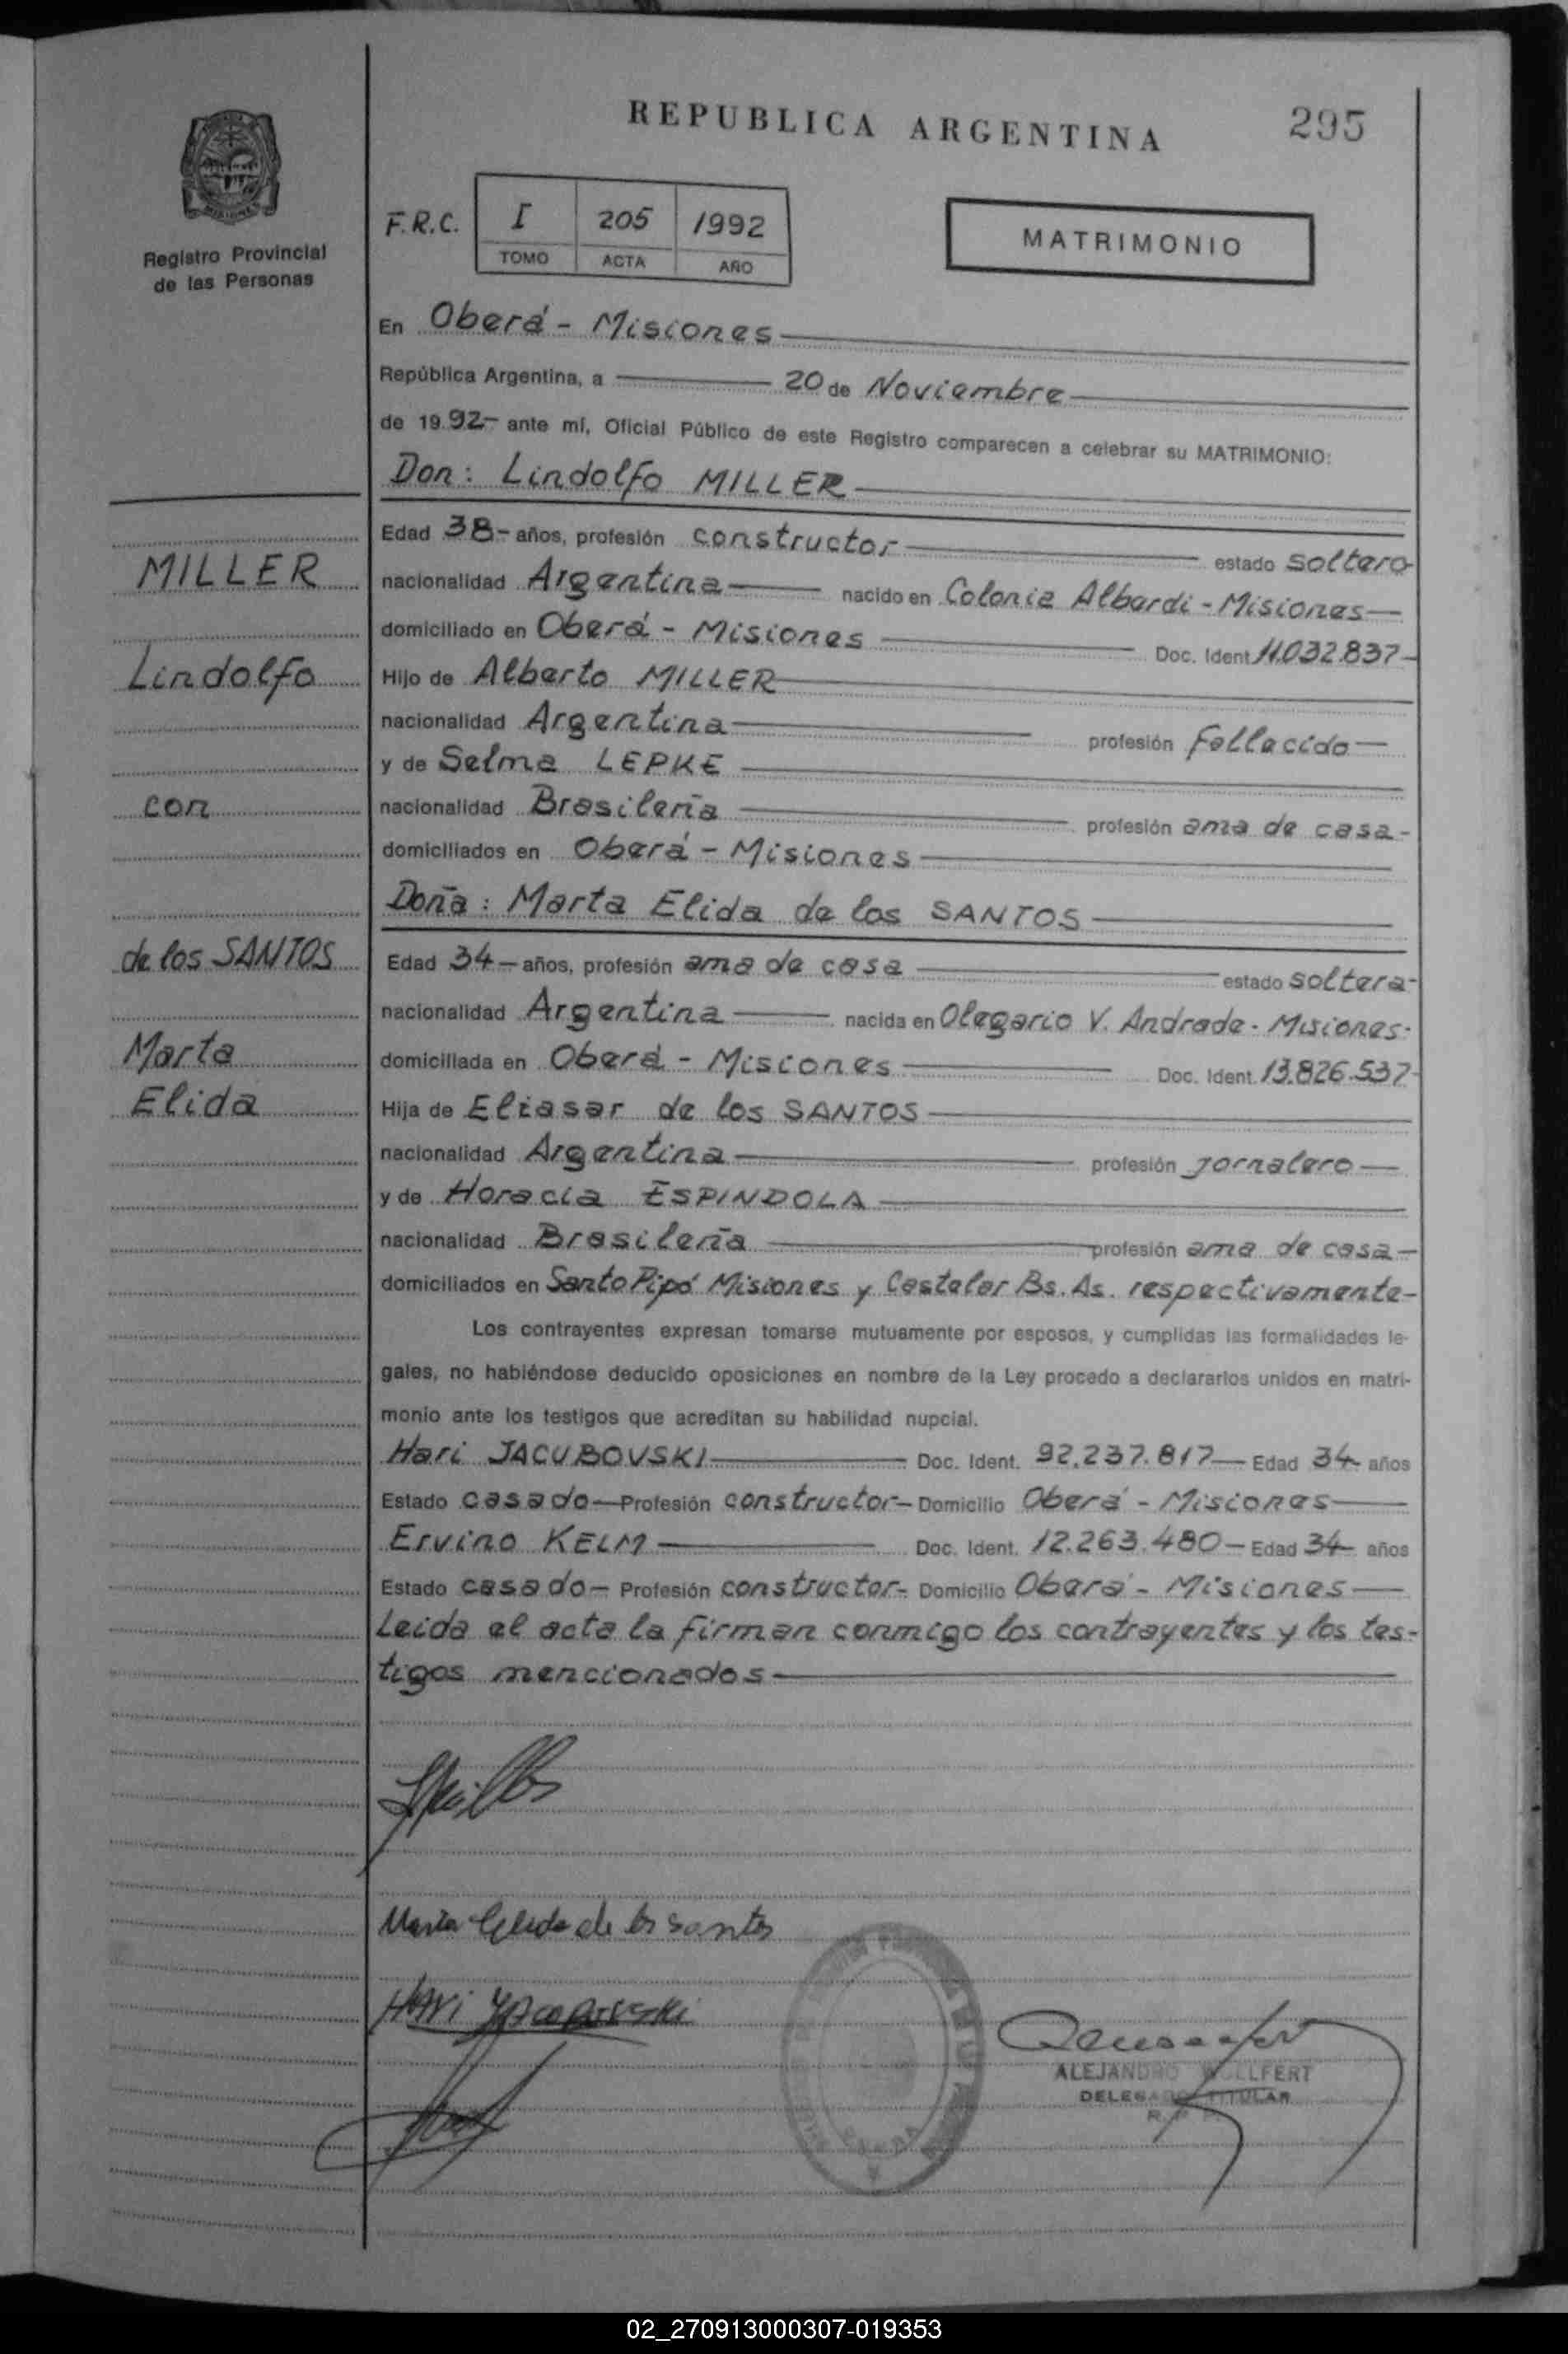 REPUBLICA ARGENTINA
295
Registro Provincial
de las Personas
F.R.C.
I 205 1992
TOMO ACTA AÑO
MATRIMONIO
En Oberá - Misiones
República Argentina, a 20 de Noviembre
de 19 92- ante mí, Oficial Público de este Registro comparecen a celebrar su MATRIMONIO:
Don: Lindolfo MILLER
Edad 38- años, profesión constructor estado soltero
nacionalidad Argentina nacido en Colonia Albardi - Misiones
domiciliado en Oberá - Misiones Doc. Ident 11.032.837
Hijo de Alberto MILLER
nacionalidad Argentina profesión fallecido
y de Selma LEPKE
nacionalidad Brasileña profesión ama de casa-
domiciliados en Oberá - Misiones
Doña: Marta Elida de los SANTOS
Edad 34 años, profesión ama de casa estado soltera-
nacionalidad Argentina nacida en Olegario V. Andrade - Misiones-
domiciliada en Oberá - Misiones Doc. Ident. 13.826.537-
Hija de Eliasar de los SANTOS
nacionalidad Argentina profesión jornalero
y de Horacia ESPINDOLA
nacionalidad Brasileña profesión ama de casa
domiciliados en Santo Pipó Misiones y Castelar Bs. As. respectivamente-
Los contrayentes expresan tomarse mutuamente por esposos, y cumplidas las formalidades le-
gales, no habiéndose deducido oposiciones en nombre de la Ley procedo a declararlos unidos en matri-
monio ante los testigos que acreditan su habilidad nupcial.
Hari JACUBOVSKI Doc. Ident. 92.237.817 Edad 34 años
Estado casado Profesión constructor Domicilio Oberá - Misiones
Ervino KELM Doc. Ident. 12.263.480 Edad 34 años
Estado casado Profesión constructor- Domicilio Oberá - Misiones
Leida el acta la firman conmigo los contrayentes y los tes-
tigos mencionados
MILLER
Lindolfo
con
de los SANTOS
Marta
Elida
Marta Elida de los Santos
HARi
ALEJANDRO WOLLFERT
DELEGADO TITULAR
02_270913000307-019353